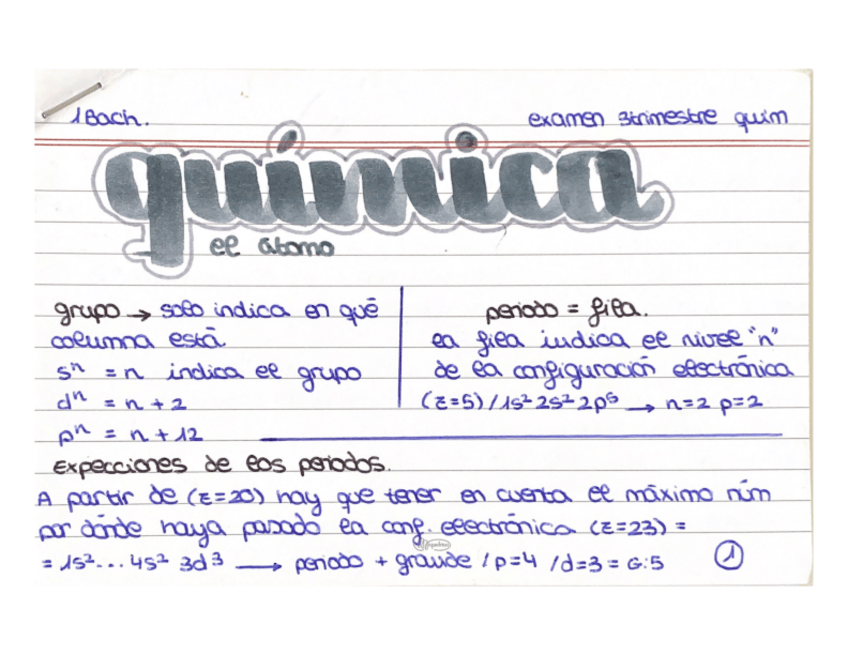 1Bach.
examen 3trimestre quim
química
el átomo
grupo → solo indica en qué
columna está
sⁿ = n indica el grupo
dⁿ = n + 2
pⁿ = n + 12
periodo = fila.
la fila indica el nivel "n"
de la configuración electrónica
(Z=5) / 1s² 2s² 2p⁵ → n=2 p=2
Expecciones de los periodos.
A partir de (Z=20) hay que tener en cuenta el máximo núm
por dónde haya pasado la conf. electrónica (Z=23) =
= 1s²... 4s² 3d³ → periodo + grande / p=4 / d=3 = G:5
1